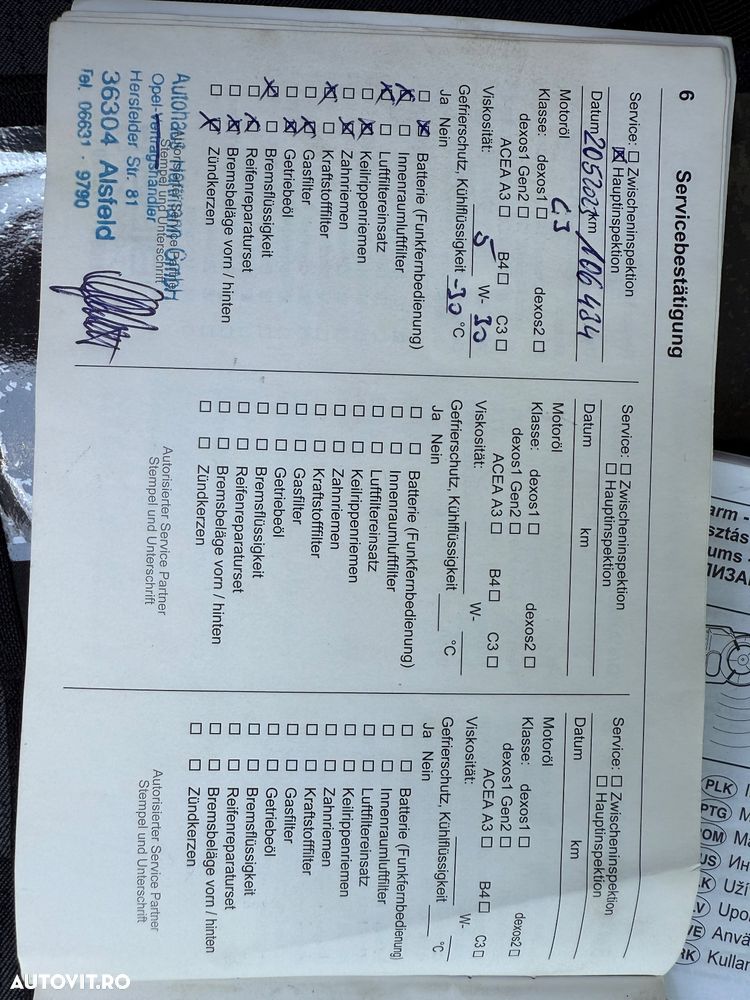 6
Servicebestätigung
Service: Zwischeninspektion
Hauptinspektion
Datum 2052025 km 106434
Motoröl C3
Klasse: dexos1 dexos2
dexos1 Gen2
ACEA A3 B4 C3
Viskosität: 5 W- 30
Gefrierschutz, Kühlflüssigkeit -30 °C
Ja Nein
Batterie (Funkfernbedienung)
Innenraumluftfilter
Luftfiltereinsatz
Keilrippenriemen
Zahnriemen
Kraftstofffilter
Gasfilter
Getriebeöl
Bremsflüssigkeit
Reifenreparaturset
Bremsbeläge vorn / hinten
Zündkerzen
Autorisierter Service Partner
Stempel und Unterschrift
Autohaus GmbH
Opel-Vertragshändler
Hersfelder Str. 81
36304 Alsfeld
Tel. 06631 - 9790
Service: Zwischeninspektion
Hauptinspektion
Datum km
Motoröl
Klasse: dexos1 dexos2
dexos1 Gen2
ACEA A3 B4 C3
Viskosität: W-
Gefrierschutz, Kühlflüssigkeit °C
Ja Nein
Batterie (Funkfernbedienung)
Innenraumluftfilter
Luftfiltereinsatz
Keilrippenriemen
Zahnriemen
Kraftstofffilter
Gasfilter
Getriebeöl
Bremsflüssigkeit
Reifenreparaturset
Bremsbeläge vorn / hinten
Zündkerzen
Autorisierter Service Partner
Stempel und Unterschrift
Service: Zwischeninspektion
Hauptinspektion
Datum km
Motoröl
Klasse: dexos1 dexos2
dexos1 Gen2
ACEA A3 B4 C3
Viskosität: W-
Gefrierschutz, Kühlflüssigkeit °C
Ja Nein
Batterie (Funkfernbedienung)
Innenraumluftfilter
Luftfiltereinsatz
Keilrippenriemen
Zahnriemen
Kraftstofffilter
Gasfilter
Getriebeöl
Bremsflüssigkeit
Reifenreparaturset
Bremsbeläge vorn / hinten
Zündkerzen
Autorisierter Service Partner
Stempel und Unterschrift
arm -
PLK
PTG
Užі
Upo
Anvä
Kullar
AUTOVIT.RO